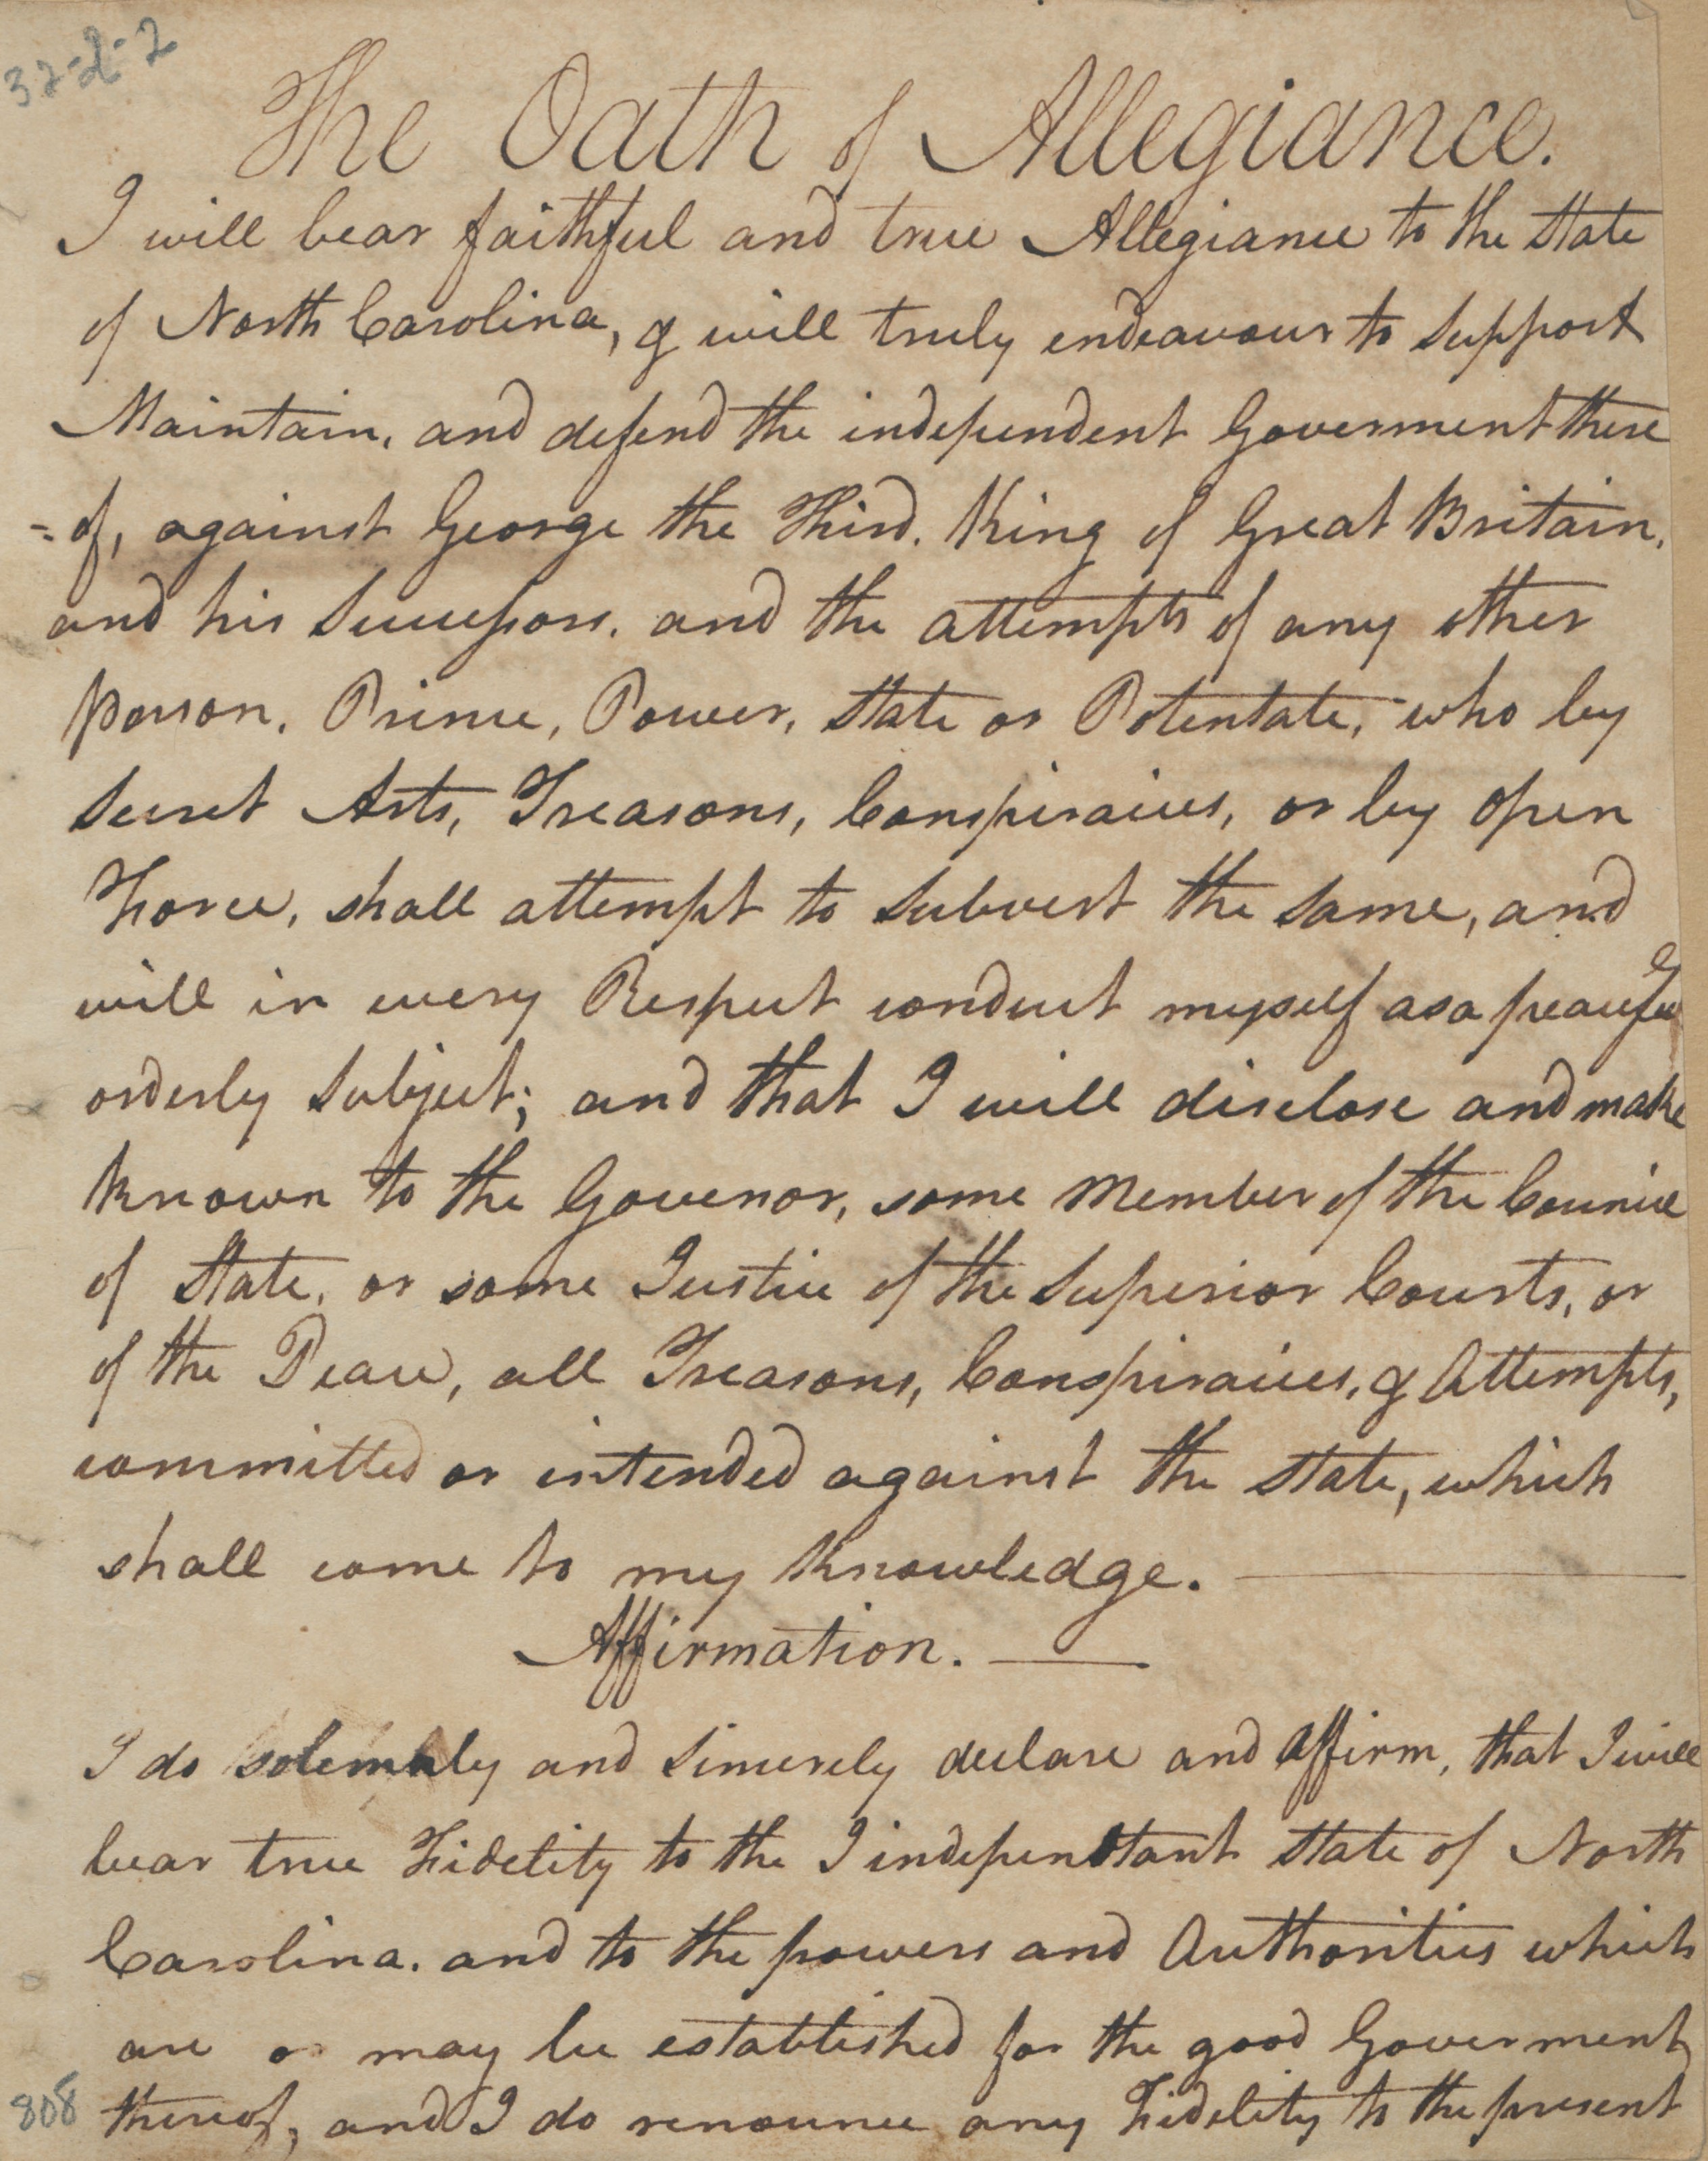 32-2-2
The Oath of Allegiance.
I will bear faithful and true Allegiance to the State
of North Carolina, & will truly endeavour to Support
Maintain, and defend the independent Goverment there
= of, against George the Third. King of Great Britain,
and his Successors. and the attempts of any other
person, Prince, Power, State or Potentate, who by
Secret Arts, Treasons, Conspiracies, or by open
Force, shall attempt to Subvert the Same, and
will in every Respect conduct myself as a peaceful
orderly Subject; and that I will disclose and make
known to the Govenor, some Member of the Council
of State, or some Justice of the Superior Courts, or
of the Peace, all Treasons, Conspiracies, & Attempts,
committed or intended against the State, which
shall come to my Knowledge.
Affirmation.
I do solemnly and Sincerely declare and Affirm, that I will
bear true Fidelity to the Independtant State of North
Carolina. and to the powers and Authorities which
are or may be established for the good Goverment
thereof, and I do renounce any Fidelity to the present
808